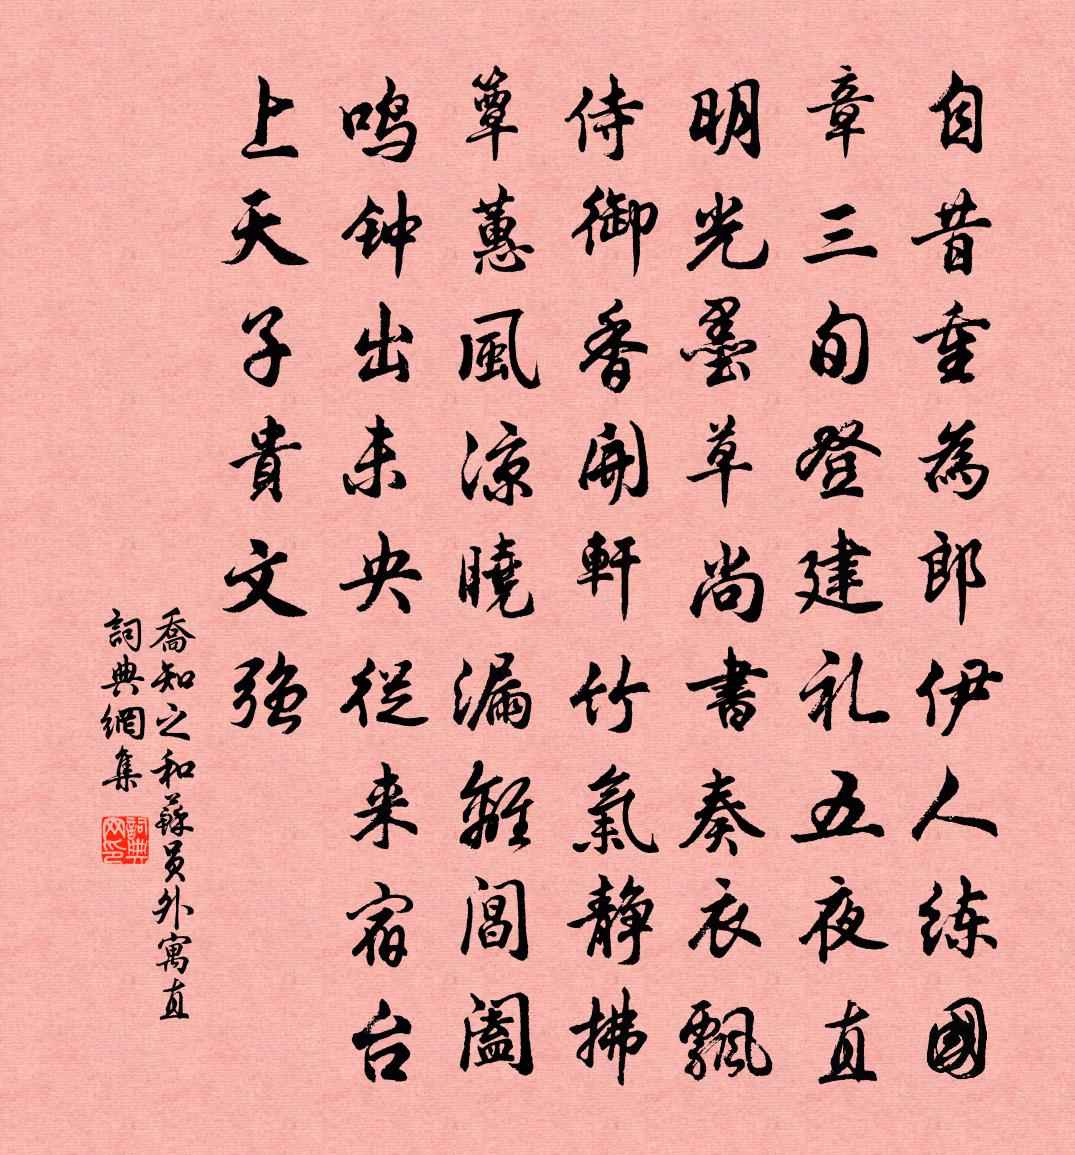 自昔重為郎伊人练國
章三旬登建礼五夜直
明光墨草尚書奏衣飄
侍御香開軒竹氣静拂
簟蕙風凉曉漏離閶闔
鸣钟出未央從来宿台
上天子貴文强
喬知之和蘇员外寓直
詞典網集
詞典网印